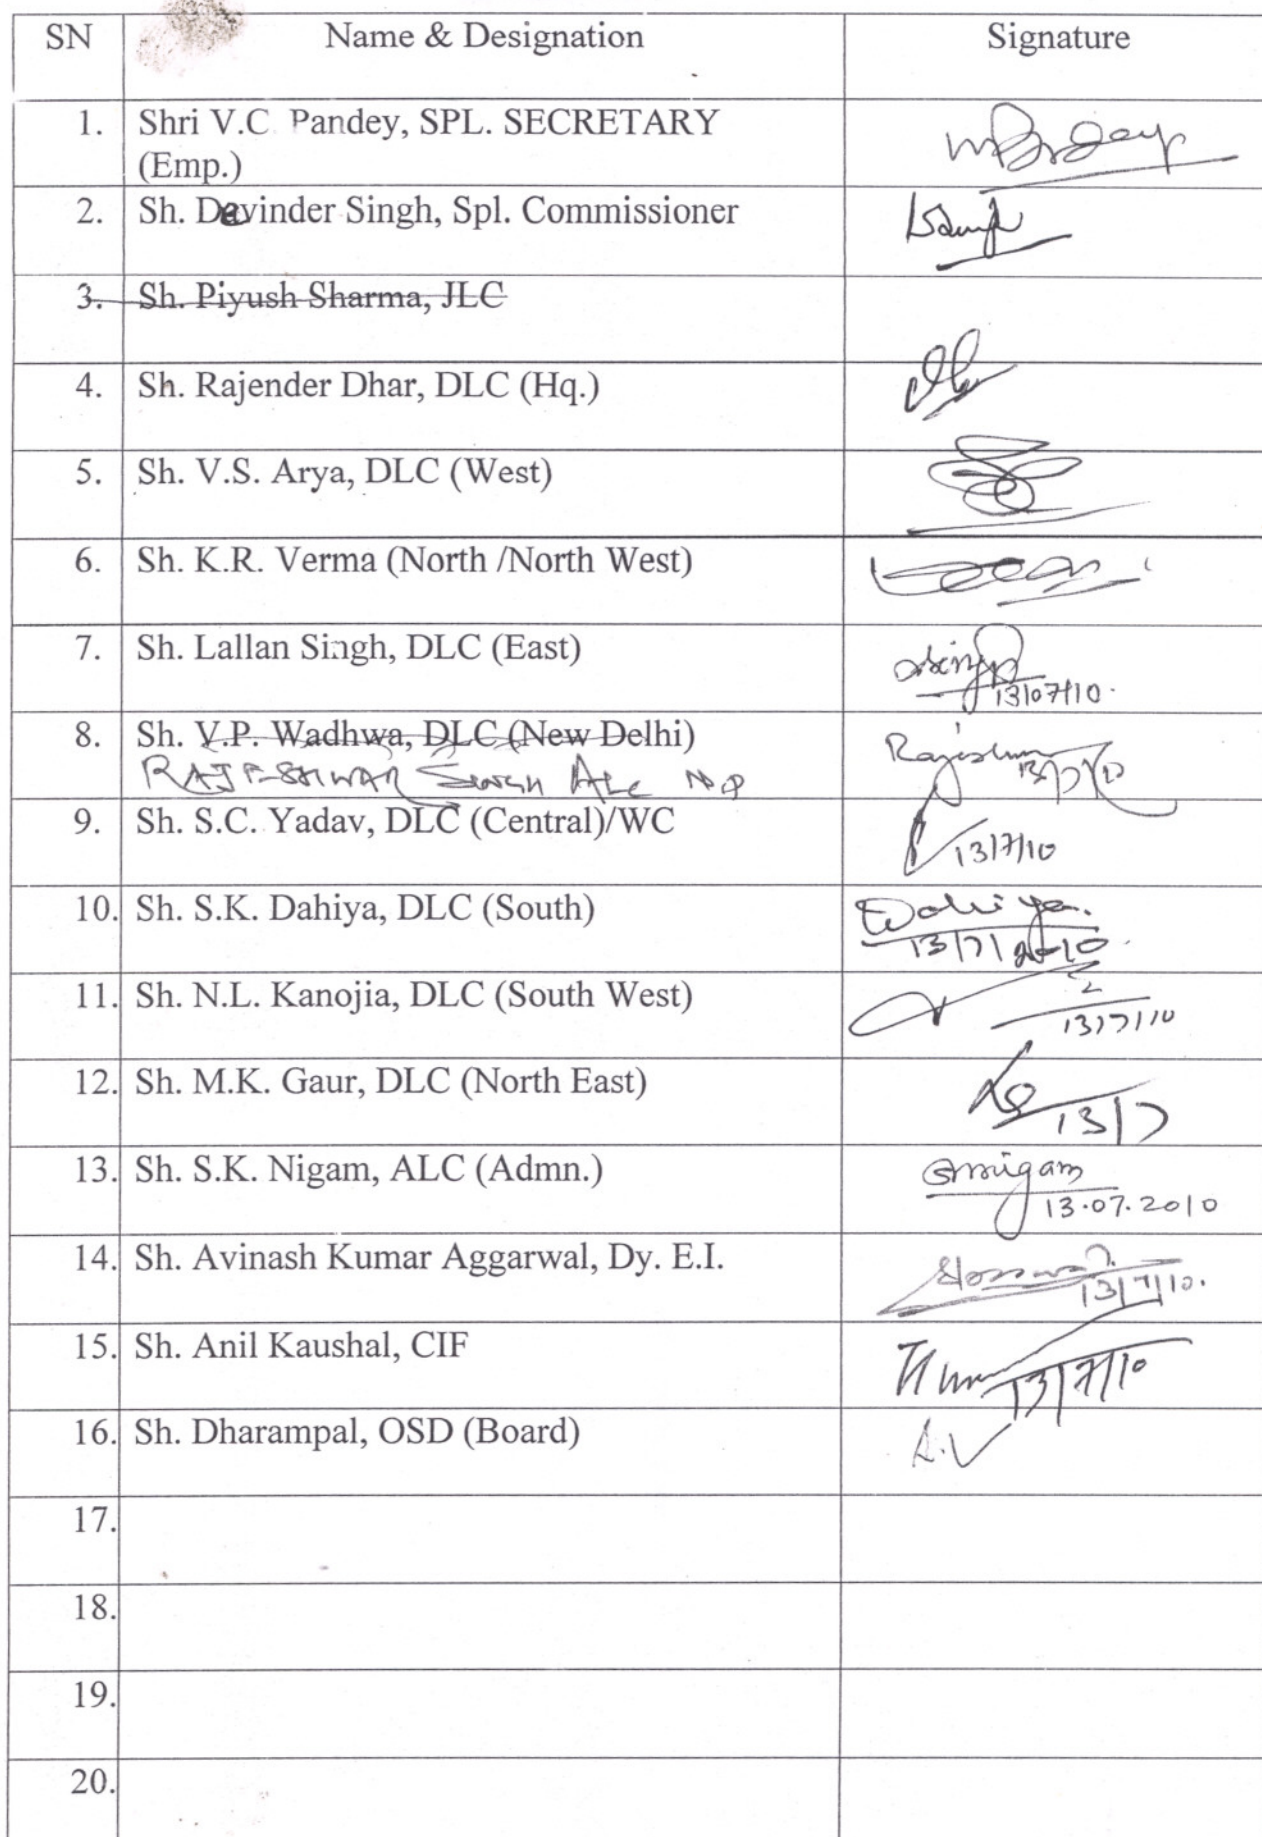 SN Name & Designation Signature
1. Shri V.C. Pandey, SPL. SECRETARY
(Emp.)
2. Sh. Devinder Singh, Spl. Commissioner
3. Sh. Piyush Sharma, JLC
4. Sh. Rajender Dhar, DLC (Hq.)
5. Sh. V.S. Arya, DLC (West)
6. Sh. K.R. Verma (North /North West)
7. Sh. Lallan Singh, DLC (East)
13/07/10.
8. Sh. V.P. Wadhwa, DLC (New Delhi)
RAJESHWAR SINGH ALC ND 13/7/10
9. Sh. S.C. Yadav, DLC (Central)/WC
13/7/10
10. Sh. S.K. Dahiya, DLC (South) Dahiya.
13/7/2010.
11. Sh. N.L. Kanojia, DLC (South West)
13/7/10
12. Sh. M.K. Gaur, DLC (North East)
13/7
13. Sh. S.K. Nigam, ALC (Admn.)
13.07.2010
14. Sh. Avinash Kumar Aggarwal, Dy. E.I.
13/7/10.
15. Sh. Anil Kaushal, CIF
13/7/10
16. Sh. Dharampal, OSD (Board)
17.
18.
19.
20.